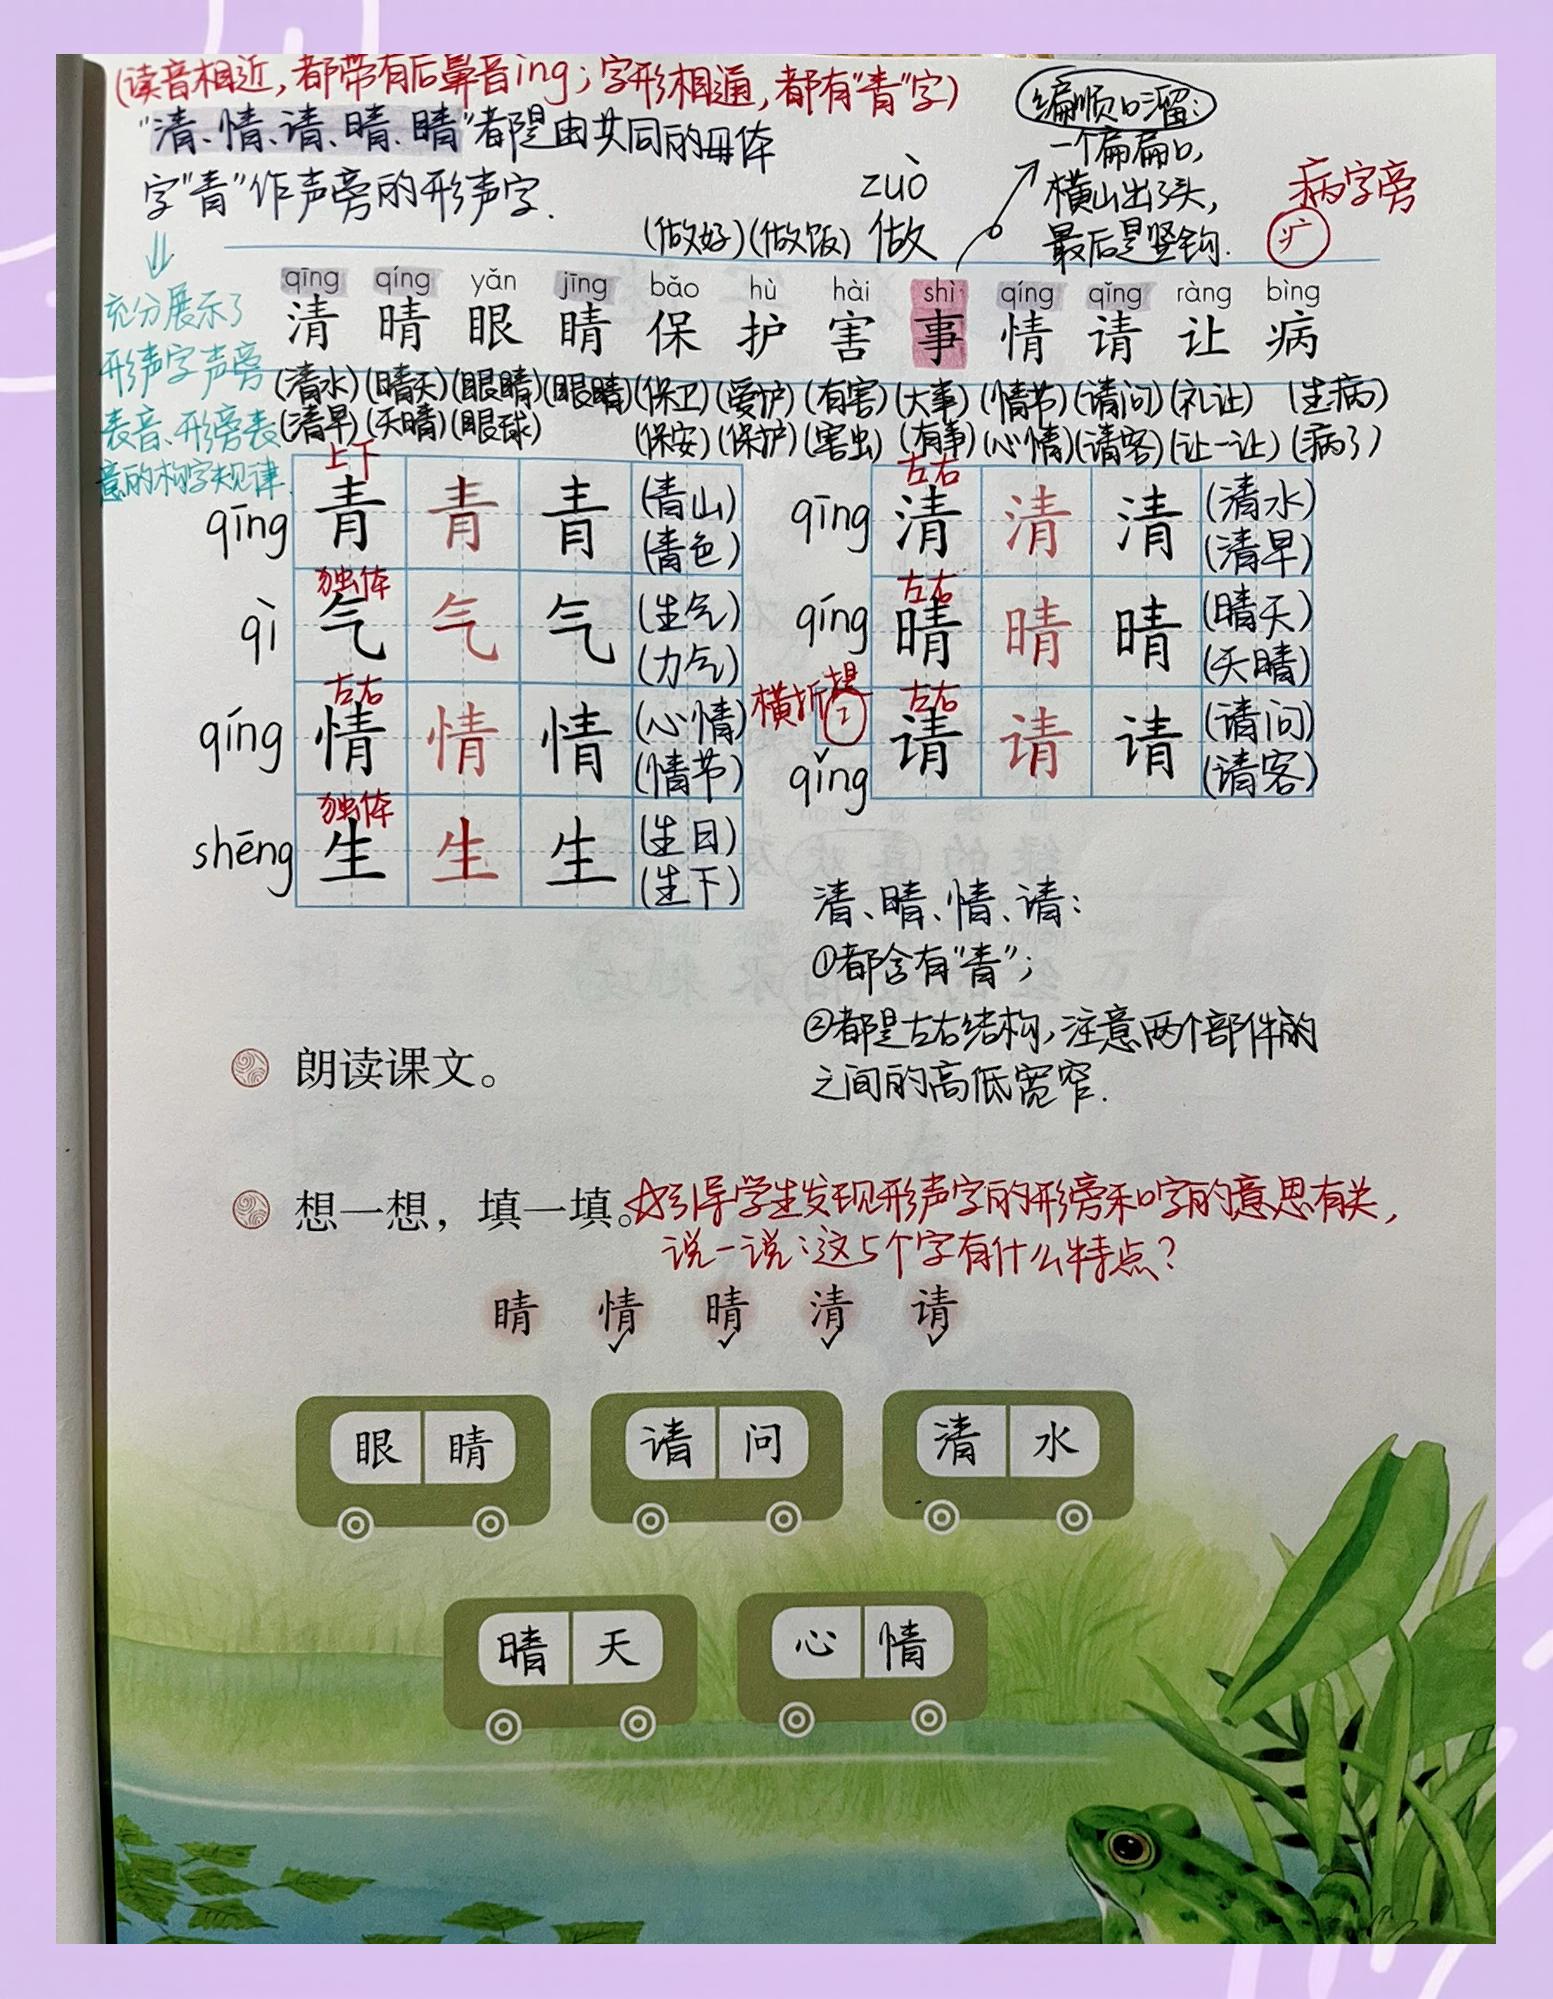 (读音相近,都带有后鼻音ing;字形相通,都有"青"字)
"清、情、请、晴、睛"都是由共同的母体
字"青"作声旁的形声字.
编顺口溜:
一个扁扁口,
横山出了头,
最后是竖钩.
病字旁
疒
zuò
(做好)(做饭) 做
充分展示了
形声字声旁
表音、形旁表
意的构字规律.
qīng qíng yǎn jīng bǎo hù hài shì qíng qǐng ràng bìng
清 晴 眼 睛 保 护 害 事 情 请 让 病
(清水)(晴天)(眼睛)(眼睛)(保卫)(爱护)(有害)(大事)(情节)(请问)(礼让)(生病)
(清早)(天晴)(眼球)(保安)(保护)(害虫)(有事)(心情)(请客)(让一让)(病了)
上下
qīng 青 青 青 (青山)
(青色)
独体
qì 气 气 气 (生气)
(力气)
左右
qíng 情 情 情 (心情)
(情节)
独体
shēng 生 生 生 (生日)
(生下)
左右
qīng 清 清 清 (清水)
(清早)
左右
qíng 晴 晴 晴 (晴天)
(天晴)
横折提
左右
qǐng 请 请 请 (请问)
(请客)
清、晴、情、请:
①都含有"青";
②都是左右结构,注意两个部件的
之间的高低宽窄.
朗读课文。
想一想，填一填。
☆引导学生发现形声字的形旁和字的意思有关,
说一说:这5个字有什么特点?
睛 情 晴 清 请
眼 睛 请 问 清 水
晴 天 心 情